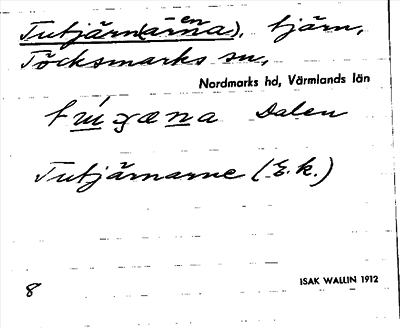 Tutjärn(-en
ärna), tjärn,
Töcksmarks sn,
Nordmarks hd, Värmlands län
Dalen
Tutjärnarne (E.k.)
8
ISAK WALLIN 1912